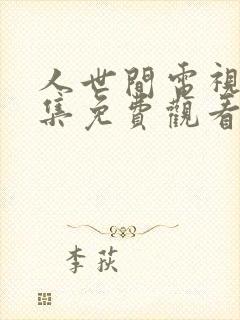 人世間電視
集免費觀看
李荻